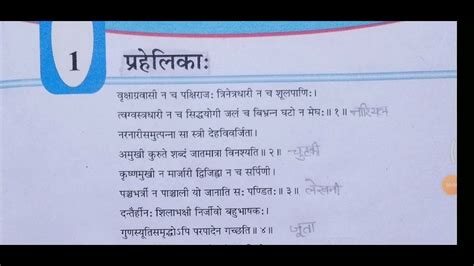 1
प्रहेलिकाः
वृक्षाग्रवासी न च पक्षिराजः त्रिनेत्रधारी न च शूलपाणिः।
त्वग्वस्त्रधारी न च सिद्धयोगी जलं च बिभ्रन्न घटो न मेघः॥ १॥ नारियल
नरनारीसमुत्पन्ना सा स्त्री देहविवर्जिता।
अमुखी कुरुते शब्दं जातमात्रा विनश्यति॥ २॥ चुटकी
कृष्णमुखी न मार्जारी द्विजिह्वा न च सर्पिणी।
पञ्चभर्त्री न पाञ्चाली यो जानाति सः पण्डितः॥ ३॥ लेखनी
दन्तैर्हीनः शिलाभक्षी निर्जीवो बहुभाषकः।
गुणस्यूतिसमृद्धोऽपि परपादेन गच्छति॥ ४॥ जूता